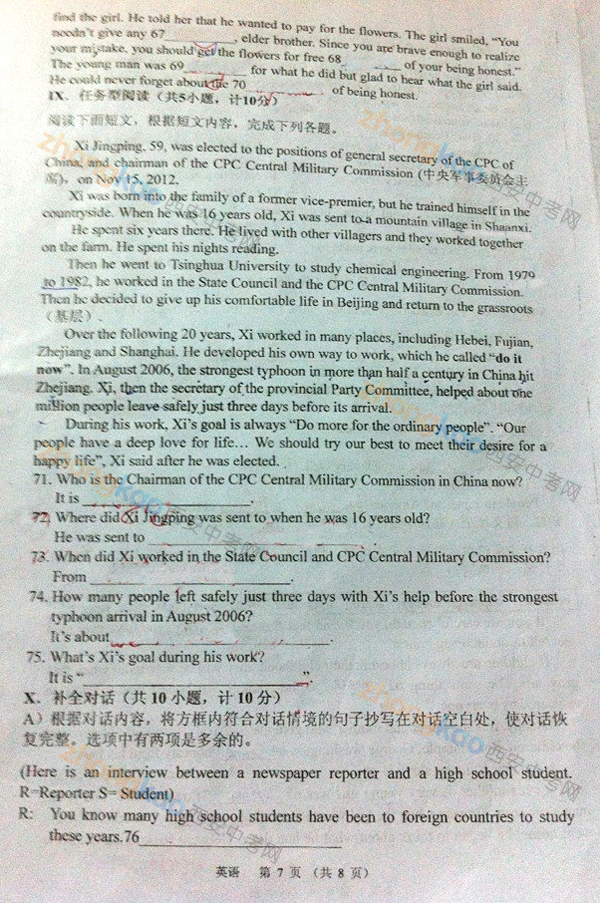 find the girl. He told her that he wanted to pay for the flowers. The girl smiled, "You
needn't give any 67__________, elder brother. Since you are brave enough to realize
your mistake, you should get the flowers for free 68__________ of your being honest."
The young man was 69__________ for what he did but glad to hear what the girl said.
He could never forget about the 70__________ of being honest.
IX. 任务型阅读（共5小题，计10分）
阅读下面短文，根据短文内容，完成下列各题。
Xi Jingping, 59, was elected to the positions of general secretary of the CPC of
China, and chairman of the CPC Central Military Commission (中央军事委员会主
席), on Nov 15, 2012.
Xi was born into the family of a former vice-premier, but he trained himself in the
countryside. When he was 16 years old, Xi was sent to a mountain village in Shaanxi.
He spent six years there. He lived with other villagers and they worked together
on the farm. He spent his nights reading.
Then he went to Tsinghua University to study chemical engineering. From 1979
to 1982, he worked in the State Council and the CPC Central Military Commission.
Then he decided to give up his comfortable life in Beijing and return to the grassroots
（基层）.
Over the following 20 years, Xi worked in many places, including Hebei, Fujian,
Zhejiang and Shanghai. He developed his own way to work, which he called "do it
now". In August 2006, the strongest typhoon in more than half a century in China hit
Zhejiang. Xi, then the secretary of the provincial Party Committee, helped about one
million people leave safely just three days before its arrival.
During his work, Xi's goal is always "Do more for the ordinary people". "Our
people have a deep love for life… We should try our best to meet their desire for a
happy life", Xi said after he was elected.
71. Who is the Chairman of the CPC Central Military Commission in China now?
It is ____________________.
72. Where did Xi Jingping was sent to when he was 16 years old?
He was sent to ____________________.
73. When did Xi worked in the State Council and CPC Central Military Commission?
From ____________________.
74. How many people left safely just three days with Xi's help before the strongest
typhoon arrival in August 2006?
It's about____________________.
75. What's Xi's goal during his work?
It is "____________________".
X. 补全对话（共 10 小题，计 10 分）
A）根据对话内容，将方框内符合对话情境的句子抄写在对话空白处，使对话恢
复完整。选项中有两项是多余的。
(Here is an interview between a newspaper reporter and a high school student.
R=Reporter S= Student)
R: You know many high school students have been to foreign countries to study
these years.76____________________
英语 第 7 页 （共 8 页）
zhongkao西安中考网